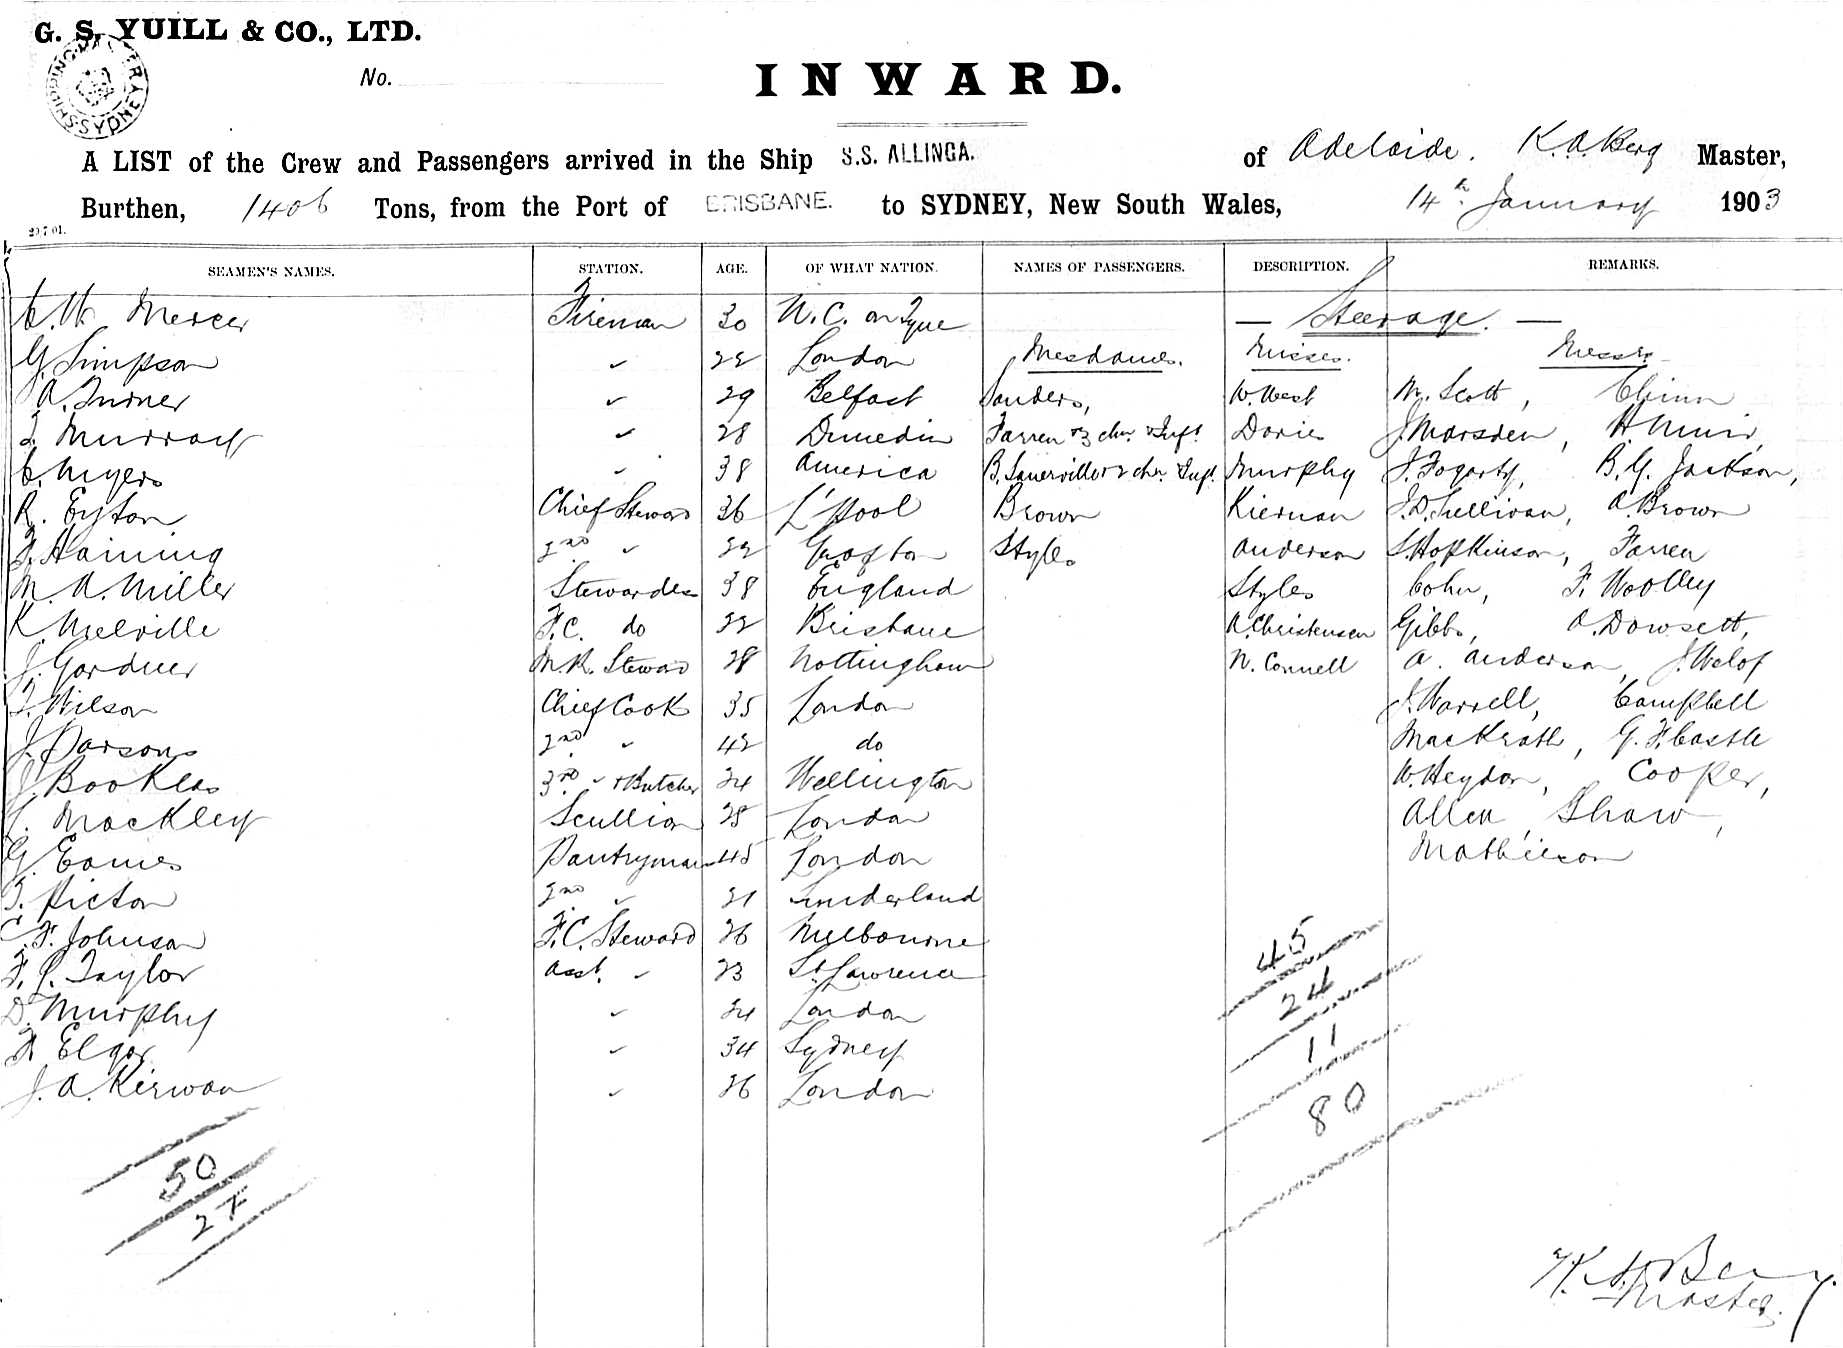 G. S. YUILL & CO., LTD.
SHIPPING MASTER SYDNEY
No.
INWARD.
A LIST of the Crew and Passengers arrived in the Ship S.S. ALLINGA. of Adelaide. K.A. Berg Master,
Burthen, 1406 Tons, from the Port of BRISBANE. to SYDNEY, New South Wales, 14th January 1903
SEAMEN'S NAMES. STATION. AGE. OF WHAT NATION. NAMES OF PASSENGERS. DESCRIPTION. REMARKS.
C.W. Mercer Fireman 30 N.C. on Tyne — Steerage. —
G. Simpson " 22 London Mesdames. Misses. Messrs
A. Turner " 29 Belfast Sanders, W. West W. Scott, Chinn
T. Murray " 28 Dunedin Farren & 3 chn. & Inft. Davies J. Marsden, H. Muir,
C. Myers " 38 America B. & 2 chn. Inft. Murphy J. Fogarty, B.G. Jackson,
R. Eyton Chief Steward 36 L'pool Brown Kiernan J.D. Sullivan, A. Brown
F. Haining 2nd " 22 Grafton Styles Anderson S. Hopkinson, Farren
M.A. Miller Stewardess 38 England Styles Cohn, F. Woolley
K. Melville F.C. do 32 Brisbane A. Christensen Gibbs, A. Dowsett,
J. Gardner M.R. Steward 28 Nottingham N. Connell A. Anderson, J. Welof
T. Wilson Chief Cook 35 London J. Warrell, Campbell
J. Parsons 2nd " 42 do MacKrath, G.F. Castle
J. Bookless 3rd " & Butcher 24 Wellington W. Heydon, Cooper,
Mackley Scullion 28 London Allen, Shaw,
G. Eames Pantryman 45 London Mathieson
T. Picton 2nd " 21 Sunderland
C.F. Johnson F.C. Steward 26 Melbourne
F.C. Taylor Asst. " 23 St. Lawrence
D. Murphy " 24 London
Elgar " 34 Sydney
J.A. Kirwan " 26 London
45
24
11
80
50
27
K.A. Berg
Master.